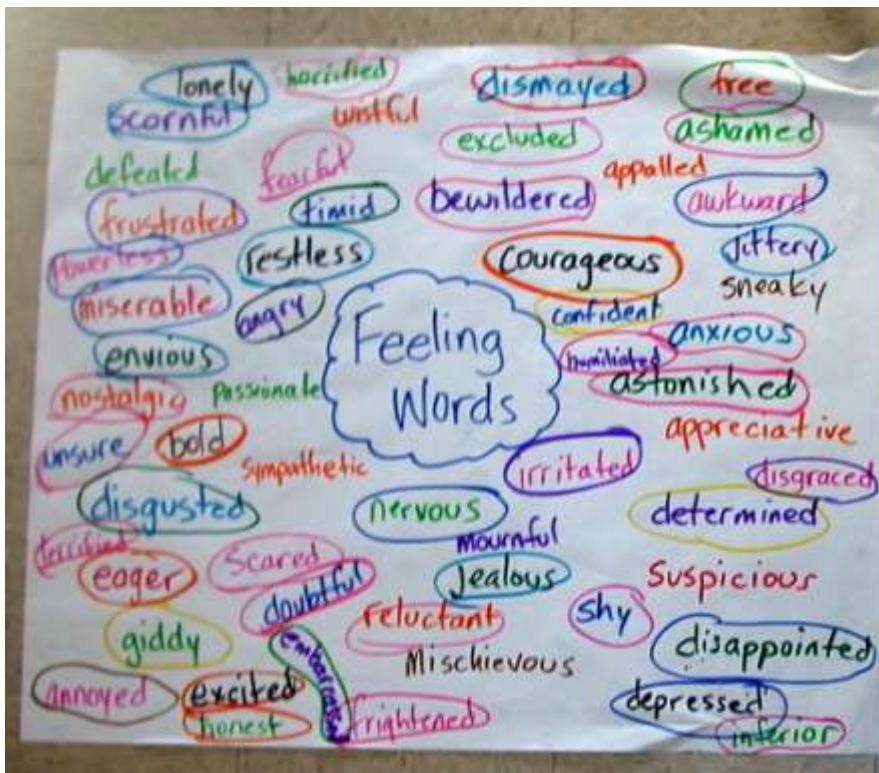 lonely
horrified
dismayed
free
scornful
wistful
excluded
ashamed
defeated
fearful
appalled
frustrated
timid
bewildered
awkward
powerless
restless
courageous
jittery
sneaky
miserable
angry
Feeling
Words
confident
anxious
envious
humiliated
astonished
nostalgic
passionate
appreciative
unsure
bold
sympathetic
irritated
disgraced
disgusted
nervous
determined
mournful
terrified
eager
scared
jealous
suspicious
doubtful
reluctant
shy
giddy
Mischievous
disappointed
annoyed
excited
honest
frightened
depressed
inferior